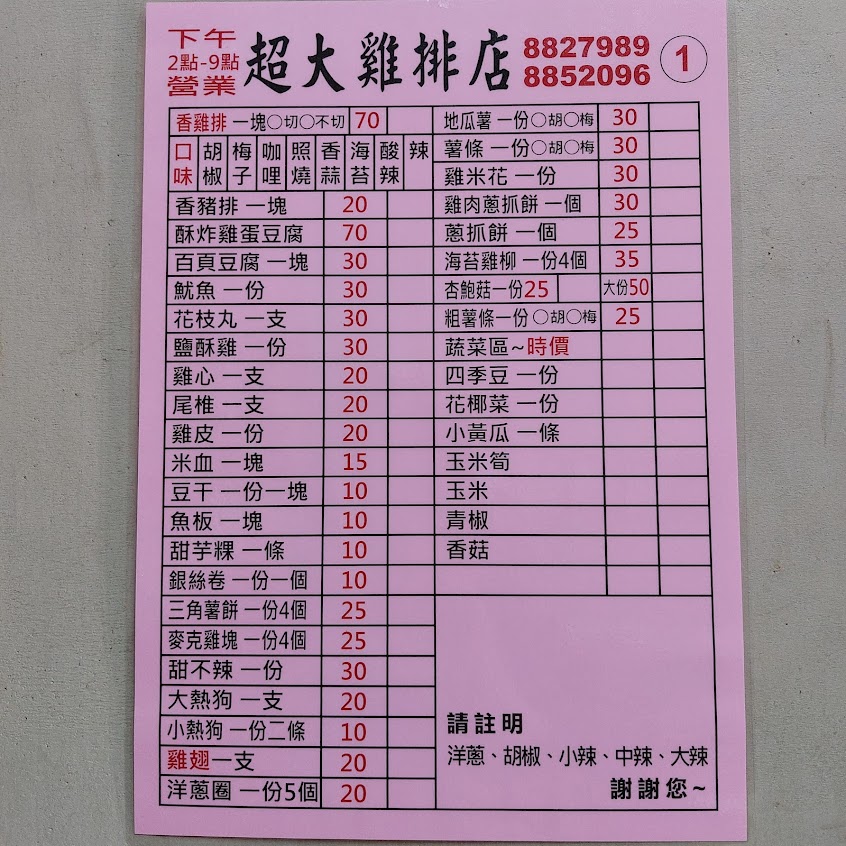 下午
2點-9點
營業
超大雞排店
8827989
8852096
1
香雞排 一塊○切○不切 70
口味 胡椒 梅子 咖哩 照燒 香蒜 海苔 酸辣 辣
香豬排 一塊 20
酥炸雞蛋豆腐 70
百頁豆腐 一塊 30
魷魚 一份 30
花枝丸 一支 30
鹽酥雞 一份 30
雞心 一支 20
尾椎 一支 20
雞皮 一份 20
米血 一塊 15
豆干 一份一塊 10
魚板 一塊 10
甜芋粿 一條 10
銀絲卷 一份一個 10
三角薯餅 一份4個 25
麥克雞塊 一份4個 25
甜不辣 一份 30
大熱狗 一支 20
小熱狗 一份二條 10
雞翅一支 20
洋蔥圈 一份5個 20
地瓜薯 一份○胡○梅 30
薯條 一份○胡○梅 30
雞米花 一份 30
雞肉蔥抓餅 一個 30
蔥抓餅 一個 25
海苔雞柳 一份4個 35
杏鮑菇一份25 大份50
粗薯條一份 ○胡○梅 25
蔬菜區~時價
四季豆 一份
花椰菜 一份
小黃瓜 一條
玉米筍
玉米
青椒
香菇
請註明
洋蔥、胡椒、小辣、中辣、大辣
謝謝您~